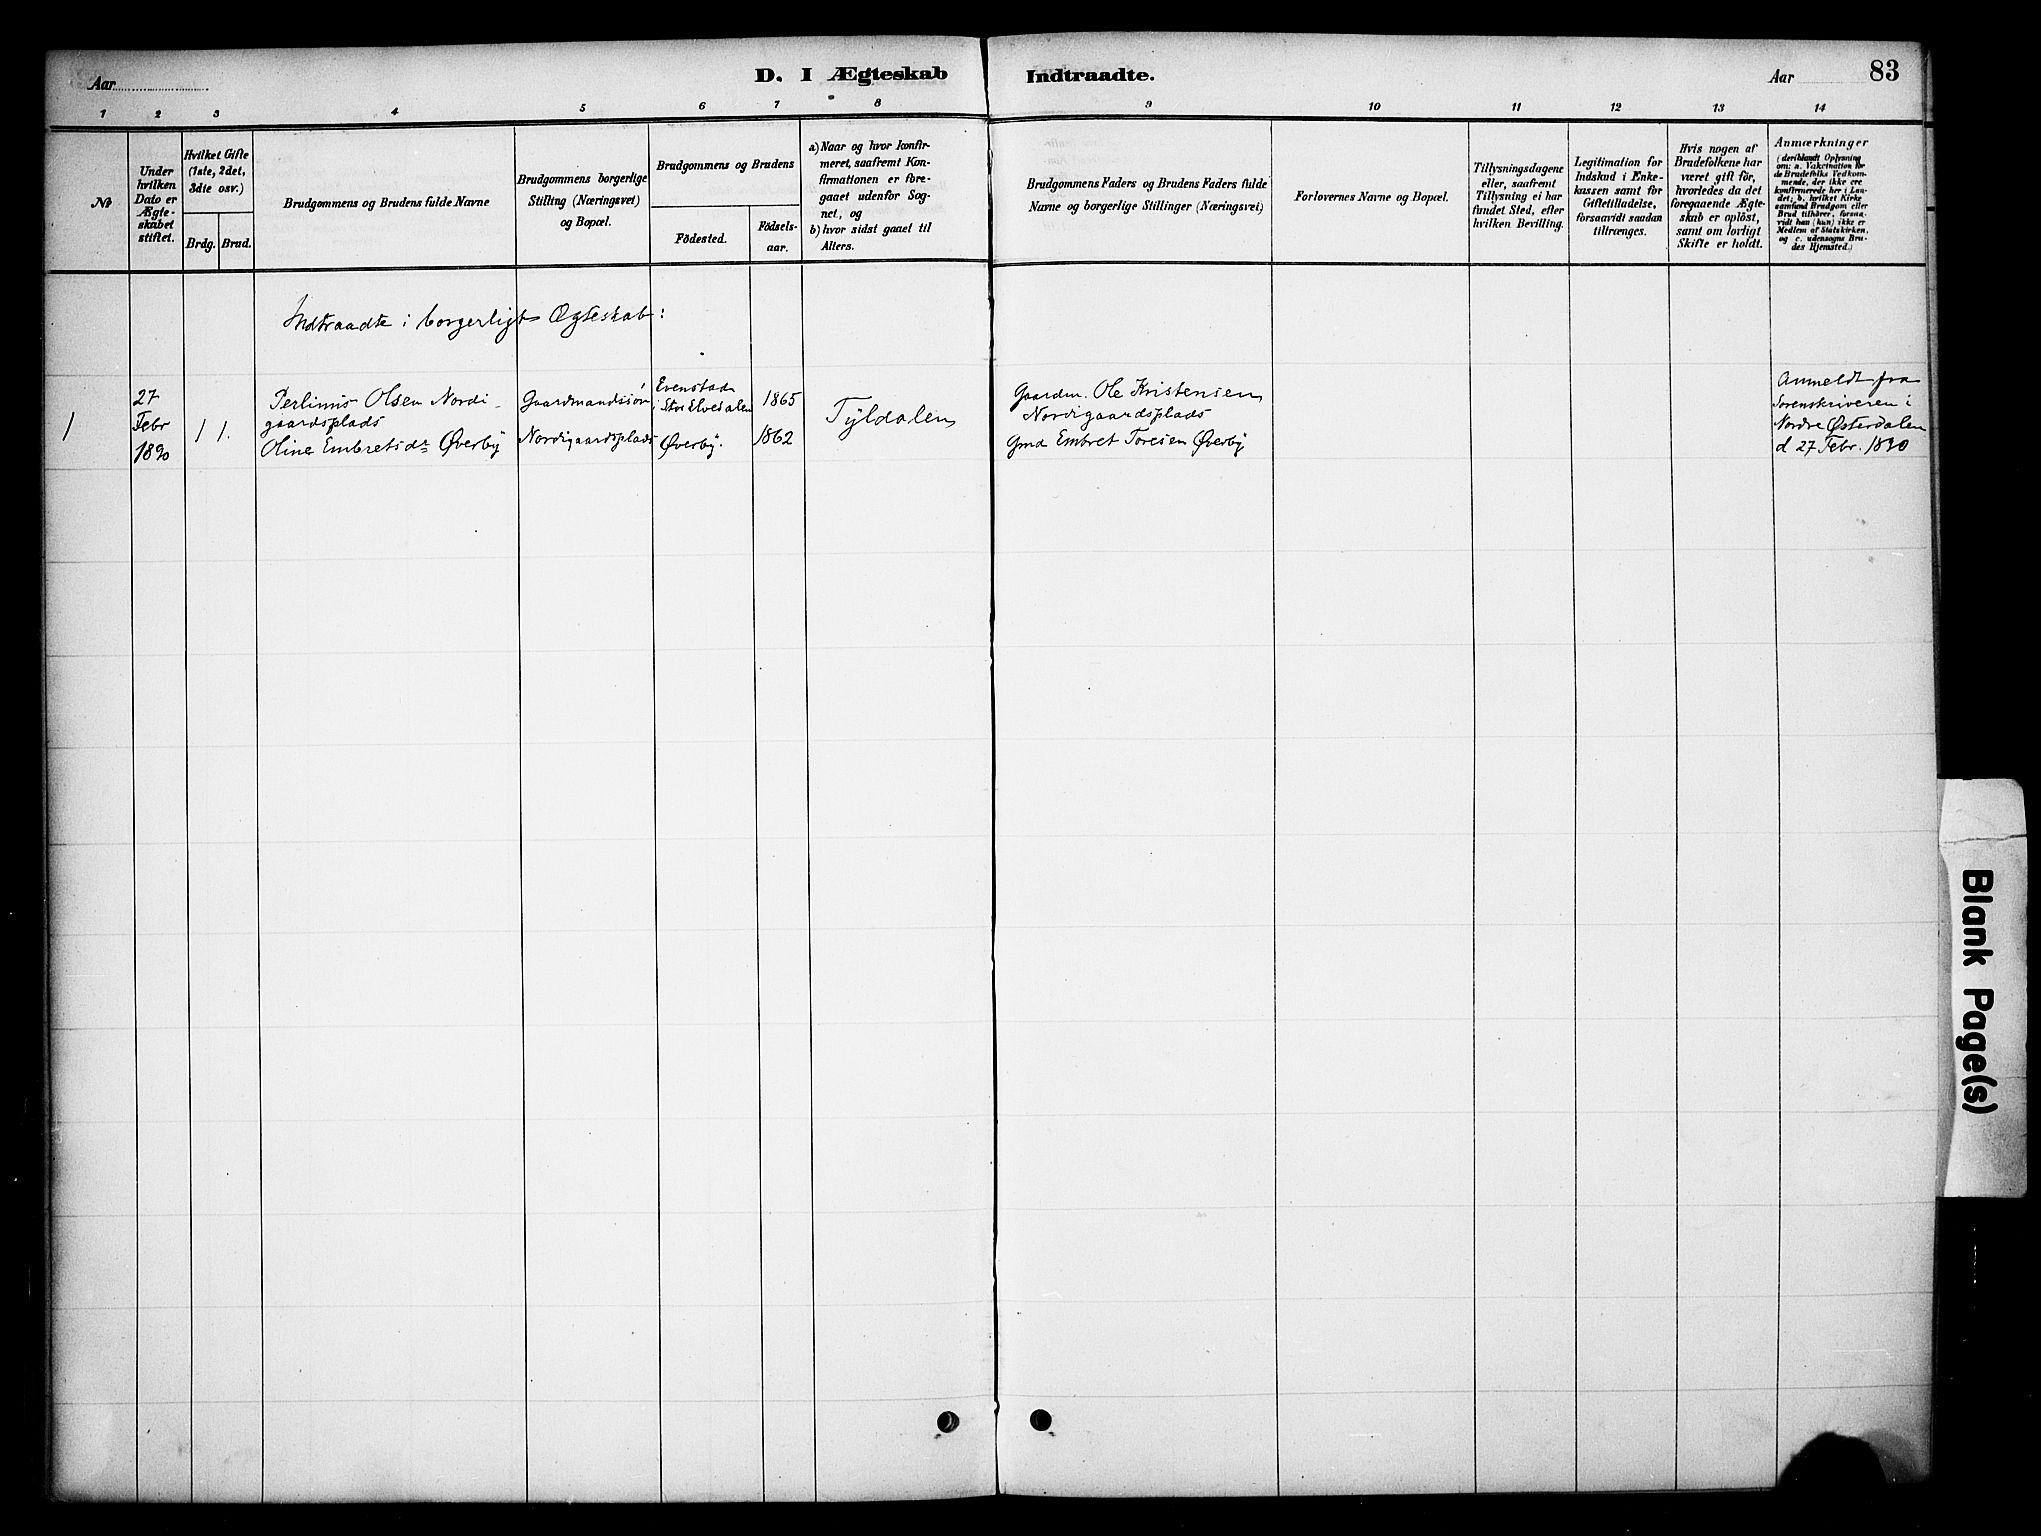 Aar
D. I Ægteskab
Indtraadte.
Aar
83
1 2 3 4 5 6 7 8 9 10 11 12 13 14
No
Under
hvilken
Dato er
Ægte-
skabet
stiftet.
Hvilket Gifte
(1ste, 2det,
3die osv.)
Brdg. Brud.
Brudgommens og Brudens fulde Navne
Brudgommens borgerlige
Stilling (Næringsvei)
og Bopæl.
Brudgommens og Brudens
Födested.
Födsels-
aar.
a) Naar og hvor konfir-
meret, saafremt Kon-
firmationen er fore-
gaaet udenfor Sog-
net, og
b) hvor sidst gaaet til
Alters.
Brudgommens Faders og Brudens Faders fulde
Navne og borgerlige Stillinger (Næringsvei)
Forlovernes Navne og Bopæl.
Tillysningsdagene
eller, saafremt
Tillysning ei har
fundet Sted, efter
hvilken Bevilling.
Legitimation for
Indskud i Ænke-
kassen samt for
Giftetilladelse,
forsaavidt saadan
tiltrænges.
Hvis nogen af
Brudefolkene har
været gift för,
hvorledes da det
foregaaende Ægte-
skab er oplöst,
samt om lovligt
Skifte er holdt.
Anmærkninger
(deriblandt Oplysning
om: a. Vakcination for
de Brudefolks Vedkom-
mende, der ikke ere
konfirmerede her i Lan-
det; b. hvilket Kirke
samfund Brudgom eller
Brud tilhører, forsaa-
vidt han (hun) ikke er
Medlem af Statskirken,
og c. udensogns Bru-
des Hjemsted.)
Indtraadte i borgerligt Ægteskab:
1
27
Febr
1890
1 1.
Perlinus Olsen Nordi-
gaardsplads
Oline Embretsdr Øverby
Gaardmandssøn
Nordigaardsplads
Evenstad
i Stor Elvedalen
Øverby.
1865
1862
Tyldalen
Gaardm. Ole Kristensen
Nordigaardsplads
Gmd Embret Toresen Øverby
Anmeldt fra
Sorenskriveren i
Nordre Østerdalen
d 27 Febr. 1890
Blank Page(s)